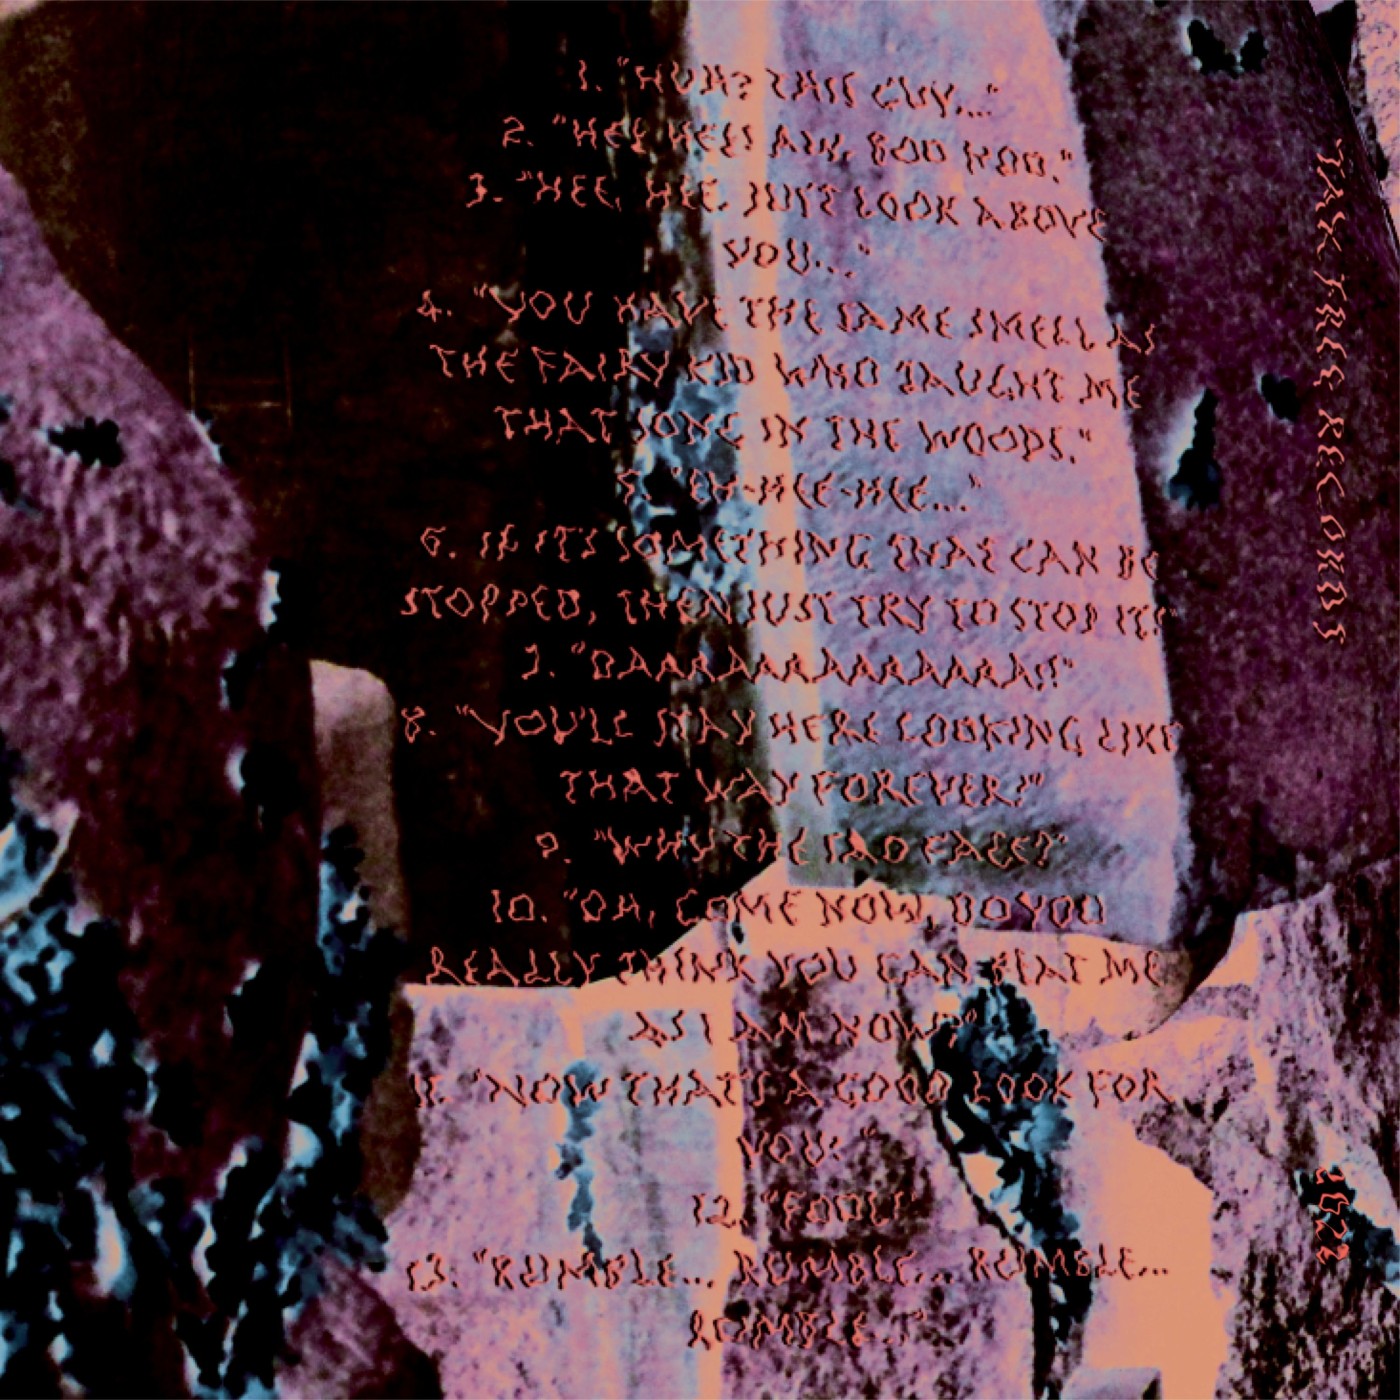 1. "HUH? THIS GUY..."
2. "HEE HEE! AW, BOO HOO."
3. "HEE, HEE. JUST LOOK ABOVE
YOU..."
4. "YOU HAVE THE SAME SMELL AS
THE FAIRY KID WHO TAUGHT ME
THAT SONG IN THE WOODS."
5. "EH-HEE-HEE..."
6. IF IT'S SOMETHING THAT CAN BE
STOPPED, THEN JUST TRY TO STOP IT!"
7. "DAARAARAARAARA!!"
8. "YOU'LL STAY HERE LOOKING LIKE
THAT WAY FOREVER?"
9. "WHY THE SAD FACE?"
10. "OH, COME NOW, DO YOU
REALLY THINK YOU CAN BEAT ME
AS I AM NOW?"
11. "NOW THAT'S A GOOD LOOK FOR
YOU."
12. "FOOL!"
13. "RUMBLE... RUMBLE... RUMBLE...
RUMBLE..."
TAX FREE RECORDS
2022